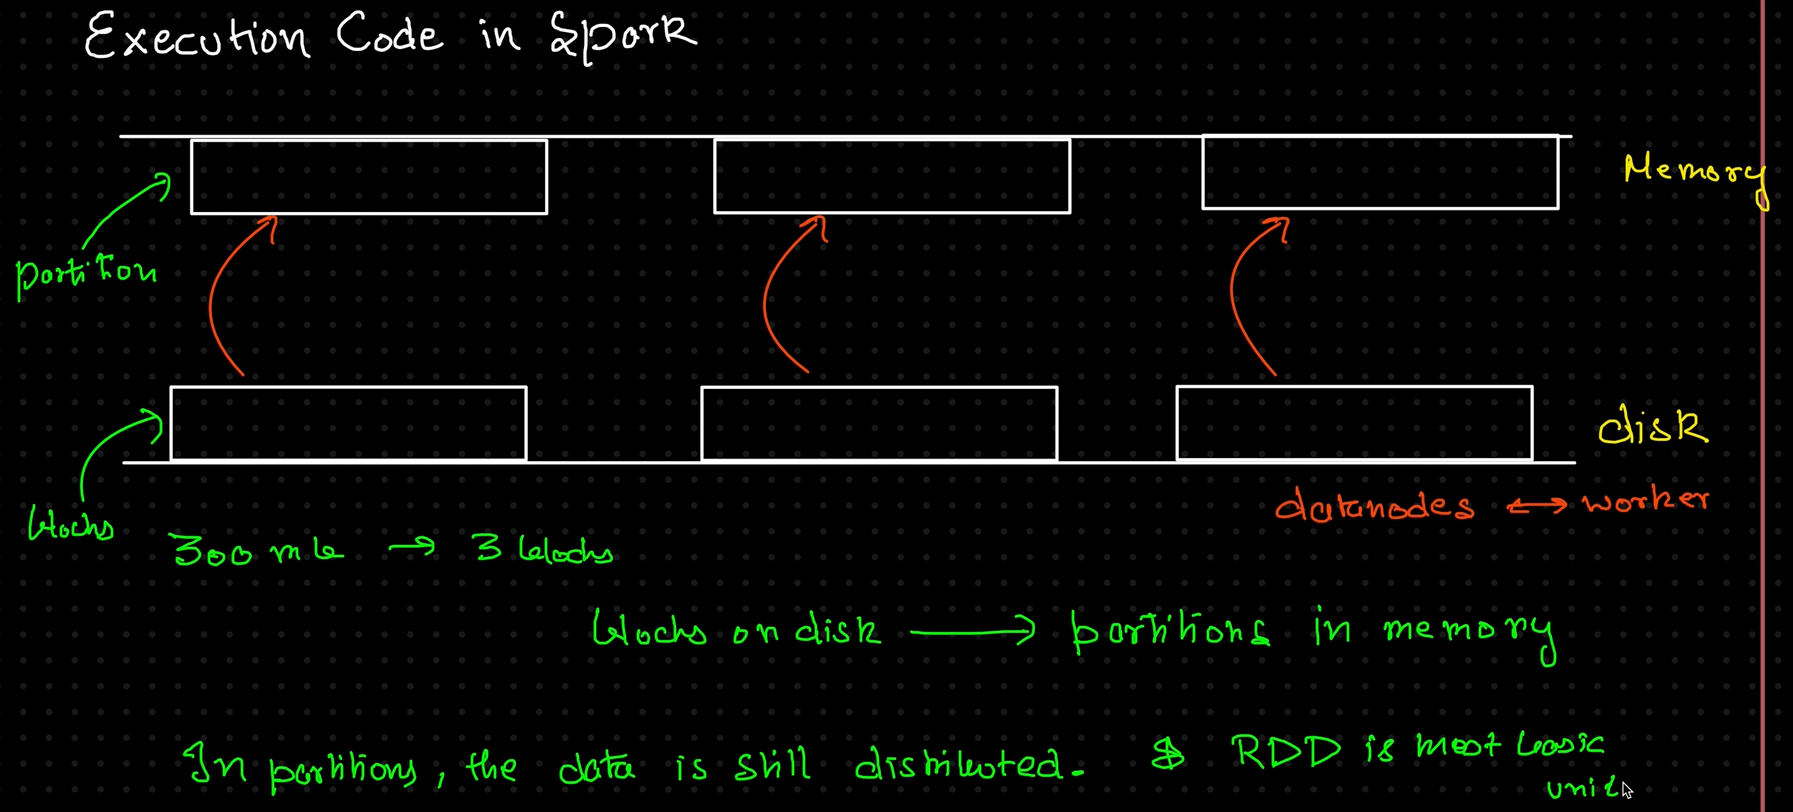 Execution Code in Spark
Memory
partition
disk
datanodes ↔ worker
blocks
300 mb → 3 blocks
blocks on disk → partitions in memory
In partitions, the data is still distributed. $ RDD is most basic
unit